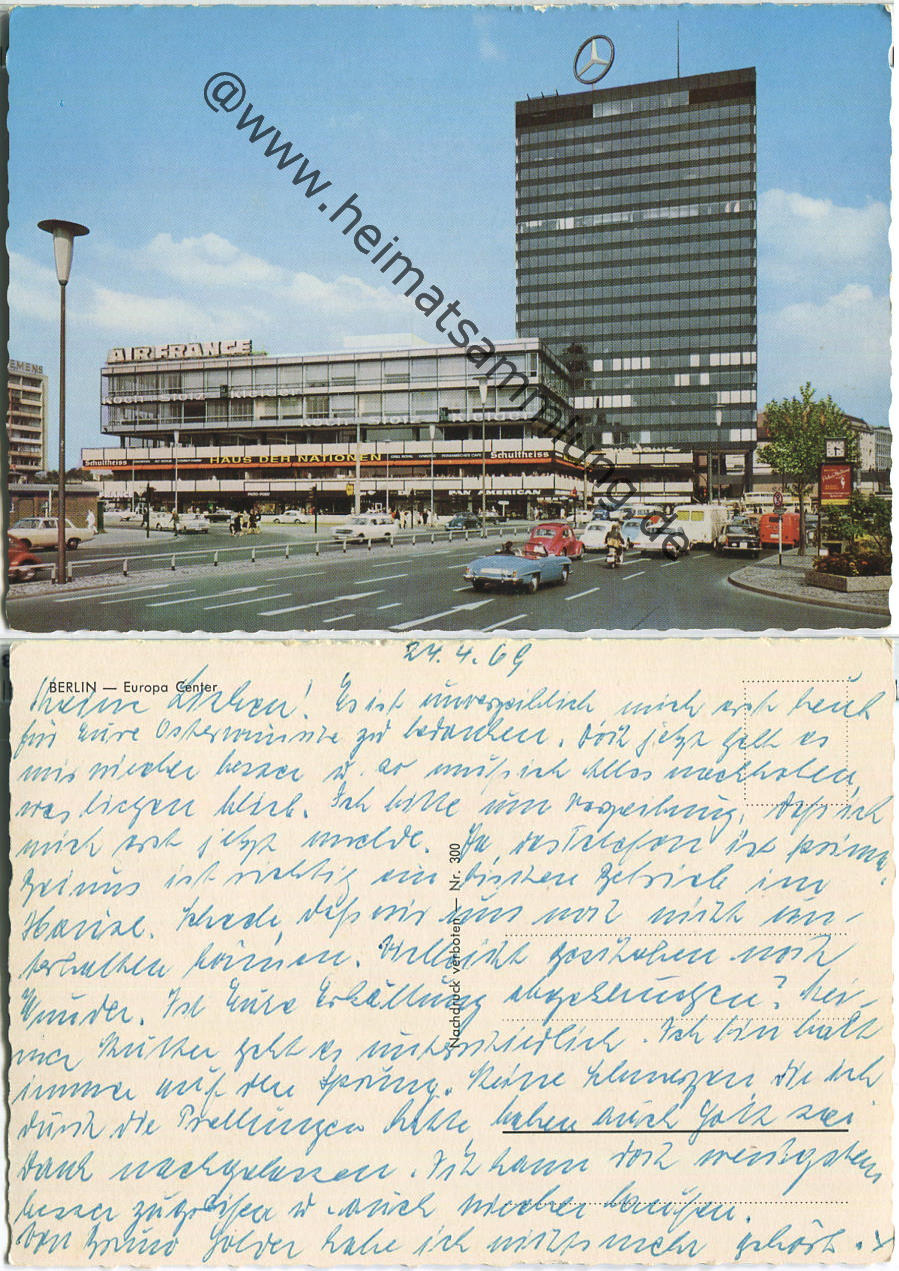 @www.heimatsammlung.de
SIEMENS
AIR FRANCE
HAUS DER NATIONEN
Schultheiss
Schultheiss
PAN AMERICAN
24.4.69
BERLIN — Europa Center
Meine Lieben! Es ist unverzeihlich mich erst heut
für Eure Osterwünsche zu bedanken. Doch jetzt geht es
mir wieder besser u. so muß ich Alles nachholen,
was liegen blieb. Ich bitte um Verzeihung, daß ich
mich erst jetzt melde. Ja, das Telefon ist prima.
Bei uns ist richtig ein bischen Betrieb im
Hause. Schade, daß wir uns noch nicht un-
terhalten können. Vielleicht geschehen noch
Wunder. Ist Eure Erkältung abgeklungen? Mei-
ner Mutter geht es unterschiedlich. Ich bin halt
immer auf dem Sprung. Meine Schmerzen die ich
durch die Prellungen hatte haben auch Gott sei
Dank nachgelassen. Ich kann doch wenigstens
besser zugreifen u. auch wieder laufen.
Von habe ich nichts mehr gehört.
Nachdruck verboten — Nr. 300